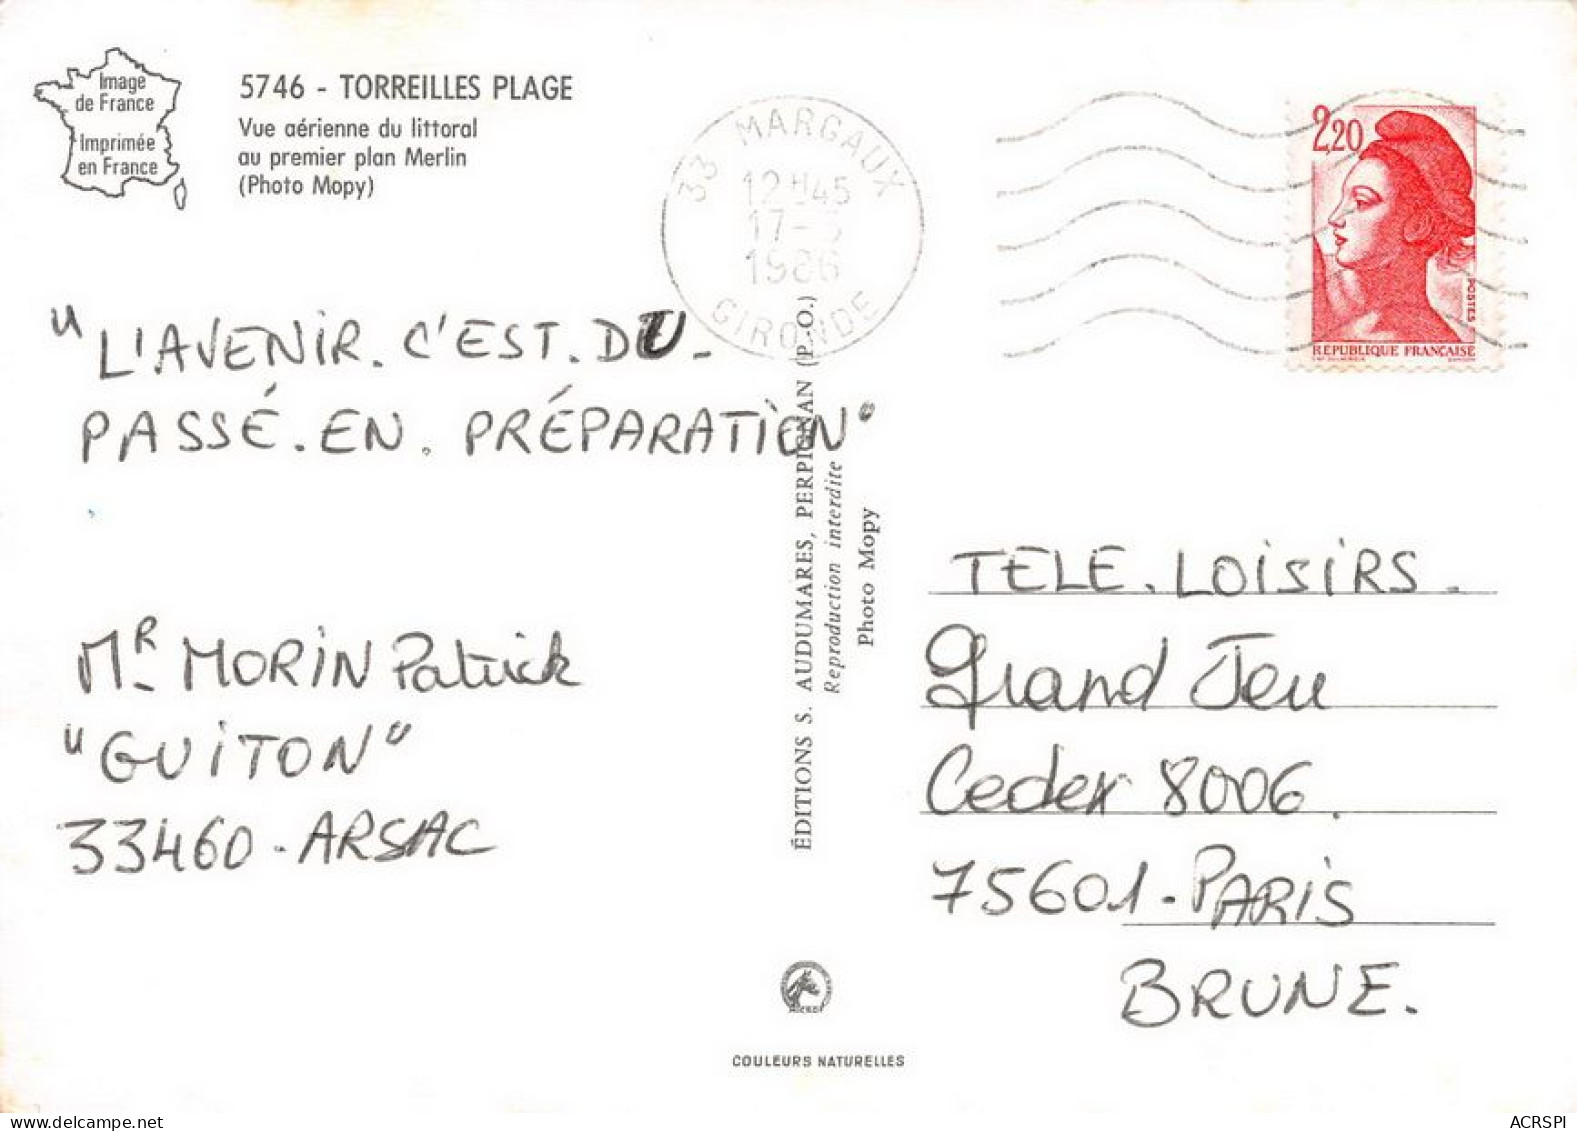 Image
de France
Imprimée
en France
5746 - TORREILLES PLAGE
Vue aérienne du littoral
au premier plan Merlin
(Photo Mopy)
33 MARGAUX
12H45
17-
1986
GIRONDE
2,20
POSTES
RÉPUBLIQUE FRANÇAISE
"L'AVENIR. C'EST. DU-
PASSÉ. EN. PRÉPARATION"
Mr MORIN Patrick
"GUITON"
33460 - ARSAC
ÉDITIONS S. AUDUMARES, PERPIGNAN (P.-O.)
Reproduction interdite
Photo Mopy
TELE. LOISIRS.
Grand Jeu
Cedex 8006.
75601 - PARIS
BRUNE.
COULEURS NATURELLES
ACRSPI